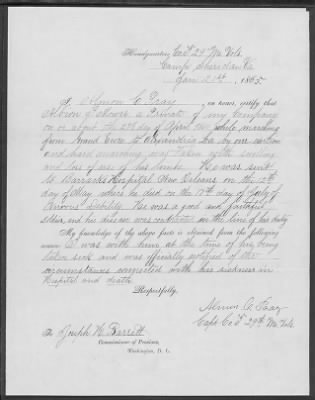 Headquarters, Co F 29 Me Vols.
Camp Sheridan
Jan 21st, 1865.
I, Almon L. Gray, on honor, certify that
Albion G. a Private of my Company
on or about the 27th day of April 1864 while marching
from Grand Ecore to Alexandria La by over exertion
and hard marching was taken with swelling
and loss of use of his limbs. He was sent
to Barracks Hospital New Orleans on the
day of May where he died on the 17th day of July of
Debility. He was a good and faithful
soldier and his disease was contracted in the line of his duty
My knowledge of the above facts is obtained from the following
source I was with him at the time of his being
taken sick and was officially notified of the
circumstances connected with his sickness in
Hospital and death
Respectfully,
Almon L. Gray
Capt. Co F 29th Me Vols.
To Joseph H. Barrett
Commissioner of Pensions,
Washington, D. C.